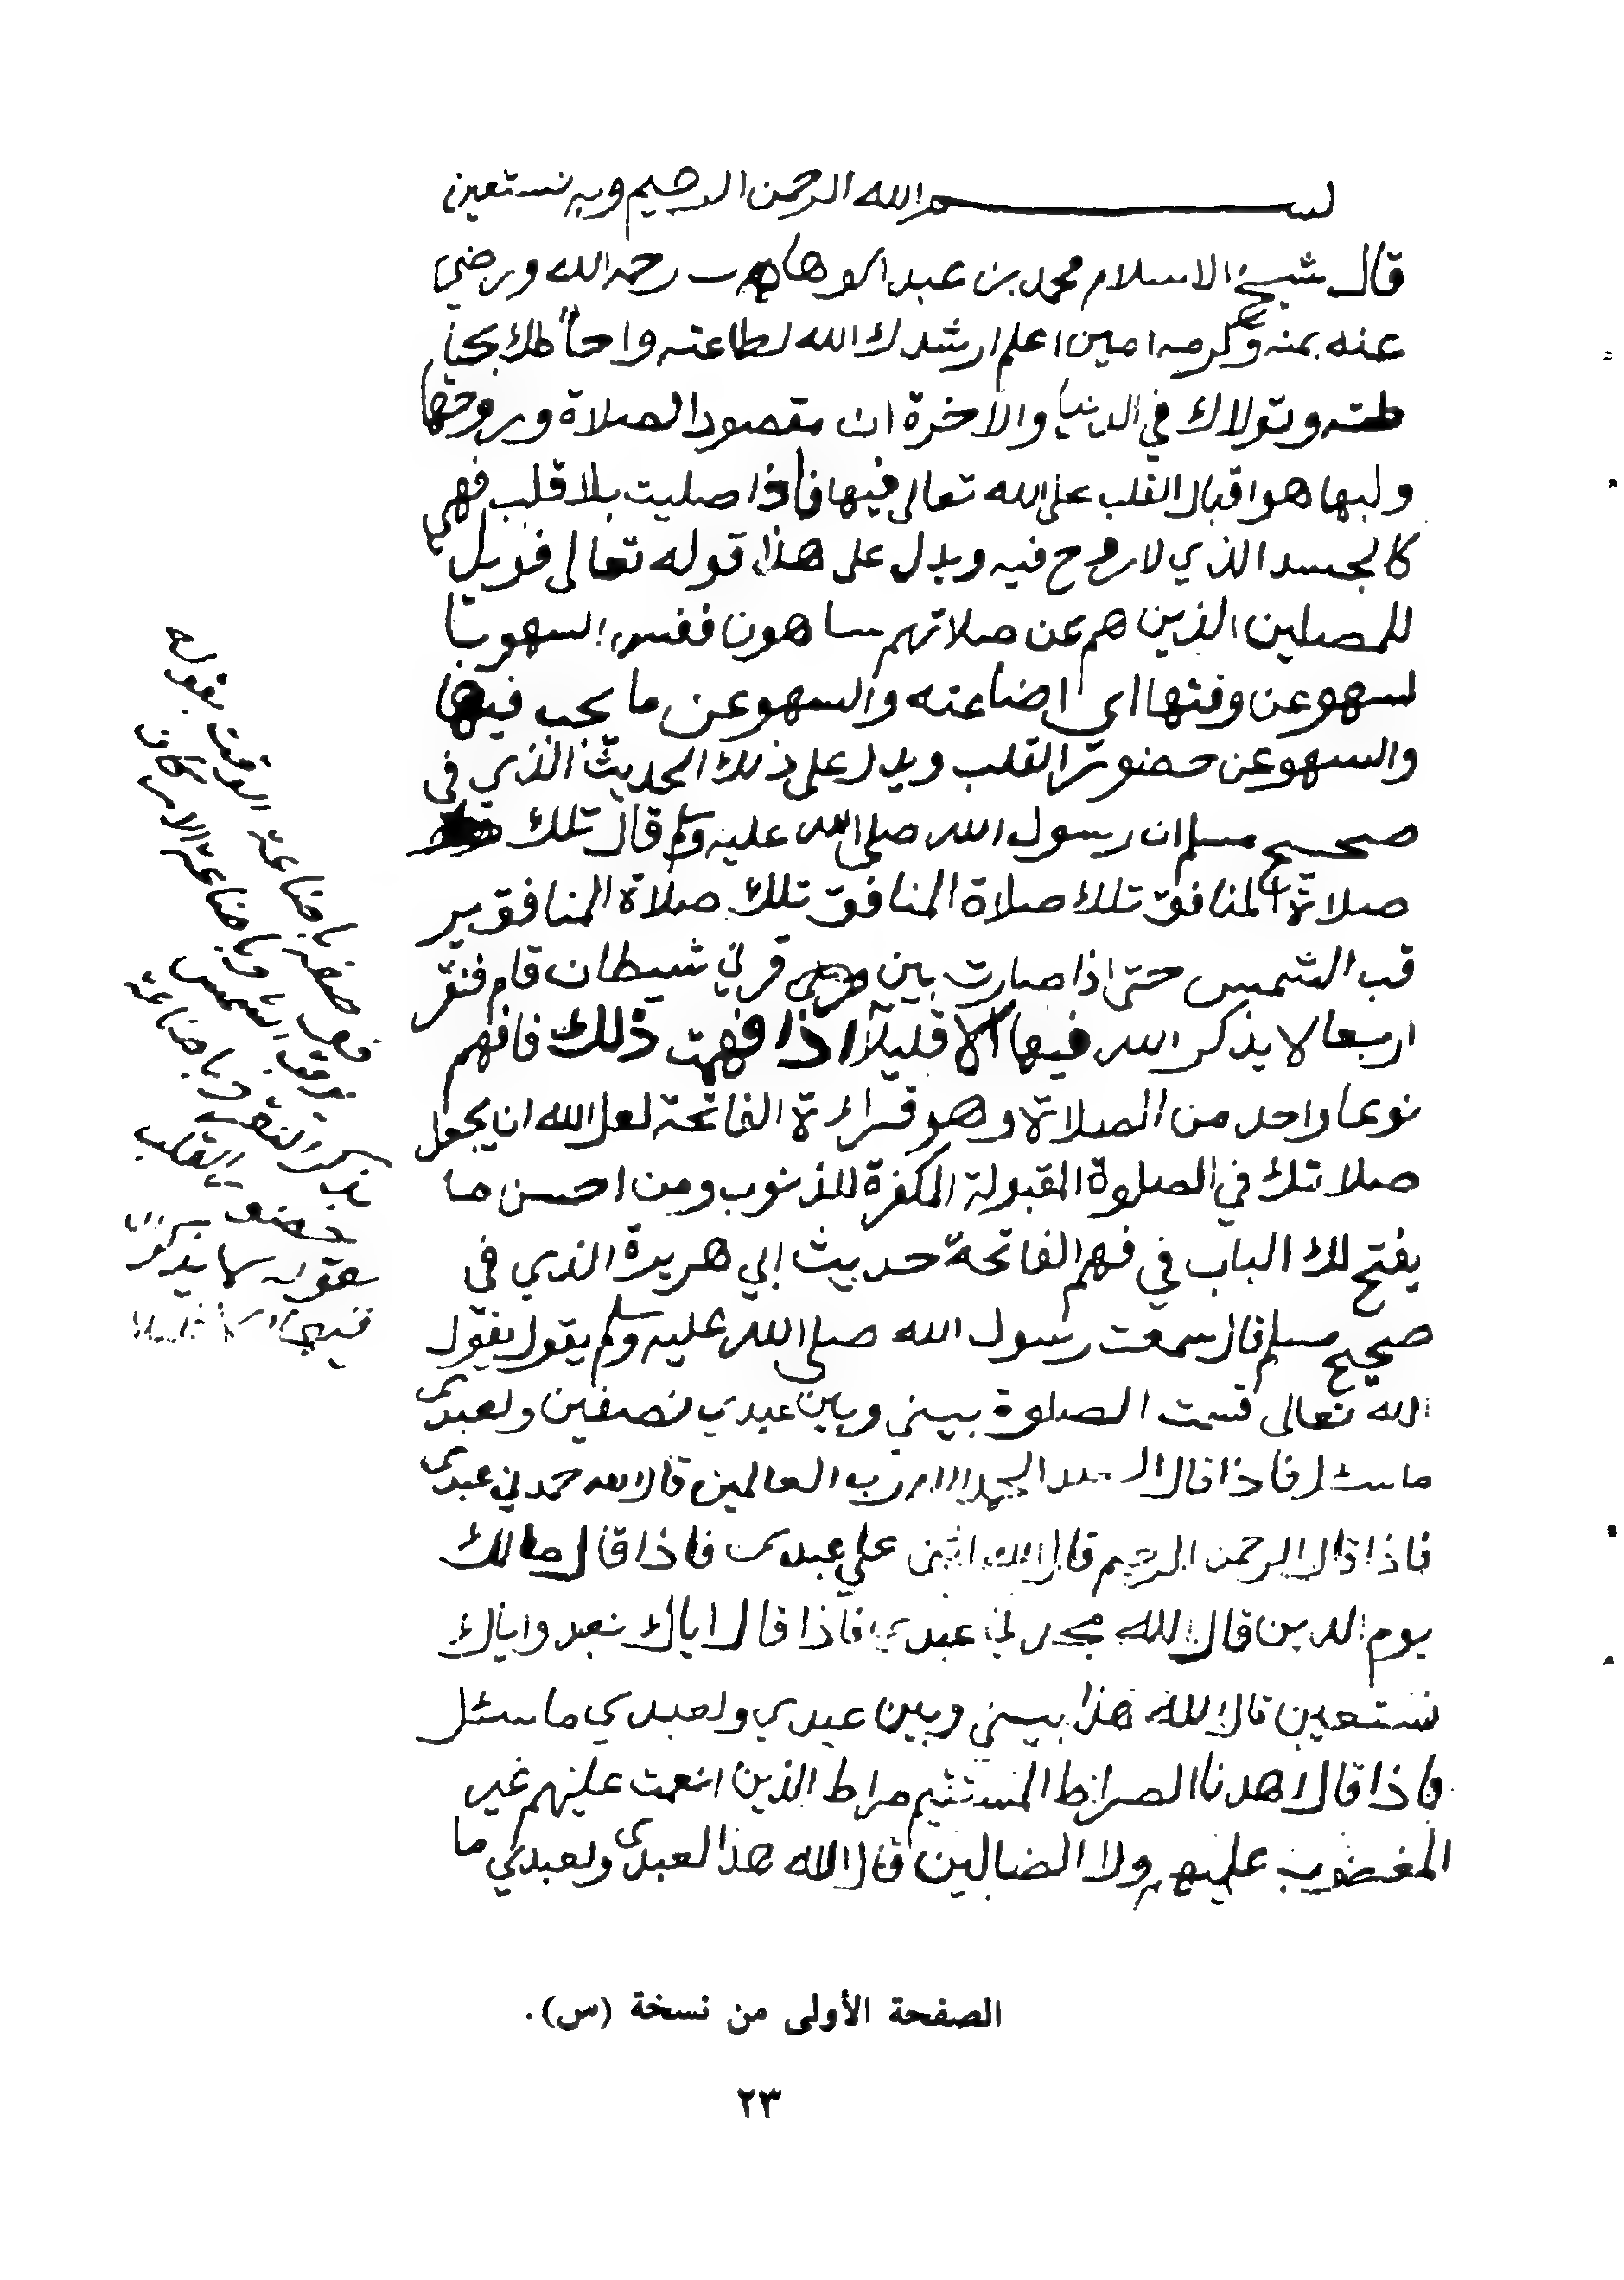 بسم الله الرحمن الرحيم وبه نستعين
قال شيخ الاسلام محمد بن عبد الوهاب رحمه الله ورضي
عنه بمنه وكرمه امين اعلم ارشدك الله لطاعته واحاطك بحيا
طته وتولاك في الدنيا والاخرة ان مقصود الصلاة وروحها
ولبها هو اقبال القلب على الله تعالى فيها فاذا صليت بلا قلب فهي
كالجسد الذي لا روح فيه ويدل على هذا قوله تعالى فويل
للمصلين الذين هم عن صلاتهم ساهون ففسر السهو با
لسهو عن وقتها اي اضاعته والسهو عن ما يجب فيها
والسهو عن حضور القلب ويدل على ذلك الحديث الذي في
صحيح مسلم ان رسول الله صلى الله عليه وسلم قال تلك
صلاة المنافق تلك صلاة المنافق تلك صلاة المنافق ير
قب الشمس حتى اذا صارت بين قرني شيطان قام فنقر
اربعا لا يذكر الله فيها الا قليلا اذا فهمت ذلك فافهم
نوعا واحد من الصلاة وهو قراءة الفاتحة لعل الله ان يجعل
صلاتك في الصلوة المقبولة المكفرة للذنوب ومن احسن ما
يفتح لك الباب في فهم الفاتحة حديث ابي هريرة الذي في
صحيح مسلم قال سمعت رسول الله صلى الله عليه وسلم يقول يقول
الله تعالى قسمت الصلوة بيني وبين عبدي نصفين ولعبدي
ما سئل فاذا قال العبد الحمد لله رب العالمين قال الله حمدني عبدي
فاذا قال الرحمن الرحيم قال الله اثنى علي عبدي فاذا قال مالك
يوم الدين قال الله مجدني عبدي فاذا قال اياك نعبد واياك
نستعين قال الله هذا بيني وبين عبدي ولعبدي ما سئل
فاذا قال اهدنا الصراط المستقيم صراط الذين انعمت عليهم غير
المغضوب عليهم ولا الضالين قال الله هذا لعبدي ولعبدي ما
باضاعة الوقت بقوله
يرقب الشمس وباضاعة الاركان
بذكر النقر وباضاعة
حضور القلب
بقوله لا يذكر الله
فيها الا قليلا
الصفحة الأولى من نسخة (س).
٢٣